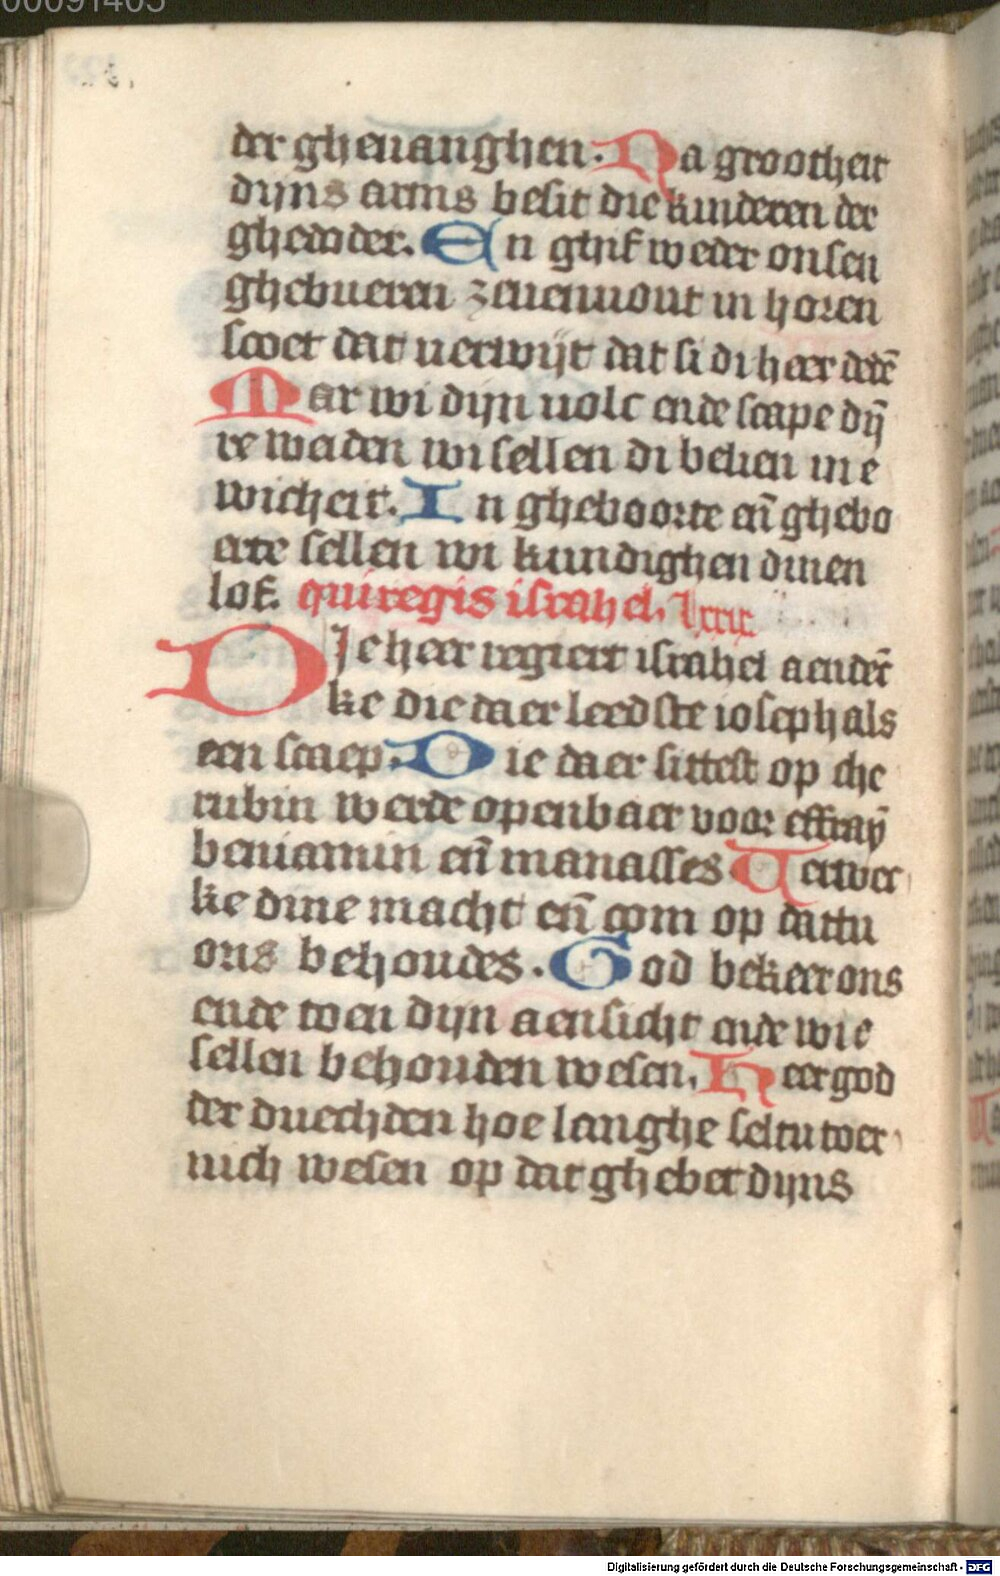 00091405
der gheuanghen. Na grootheit
dijns arms besit die kinderen der
ghedoder. En ghif weder onsen
ghebueren zeuenuout in horen
scoet dat uerwijt dat si di heer dedē
Mar wi dijn uolc ende scape dij̄
re weiden wi sellen di belien in e
wicheit. In gheboorte eñ ghebo
erte sellen wi kundighen dinen
lof. qui regis israhel. lxxix
Die heer regiert israhel aendēc
ke die daer leedste ioseph als
een scaep. Die daer sittest op che
rubin werde openbaer voor effraȳ
beniamin eñ manasses Uerwec
ke dine macht eñ com op dattu
ons behoudes. God bekeer ons
ende toen dijn aensicht ende wie
sellen behouden wesen. Heer god
der duechden hoe langhe seltu toer
nich wesen op dat ghebet dijns
Digitalisierung gefördert durch die Deutsche Forschungsgemeinschaft - DFG